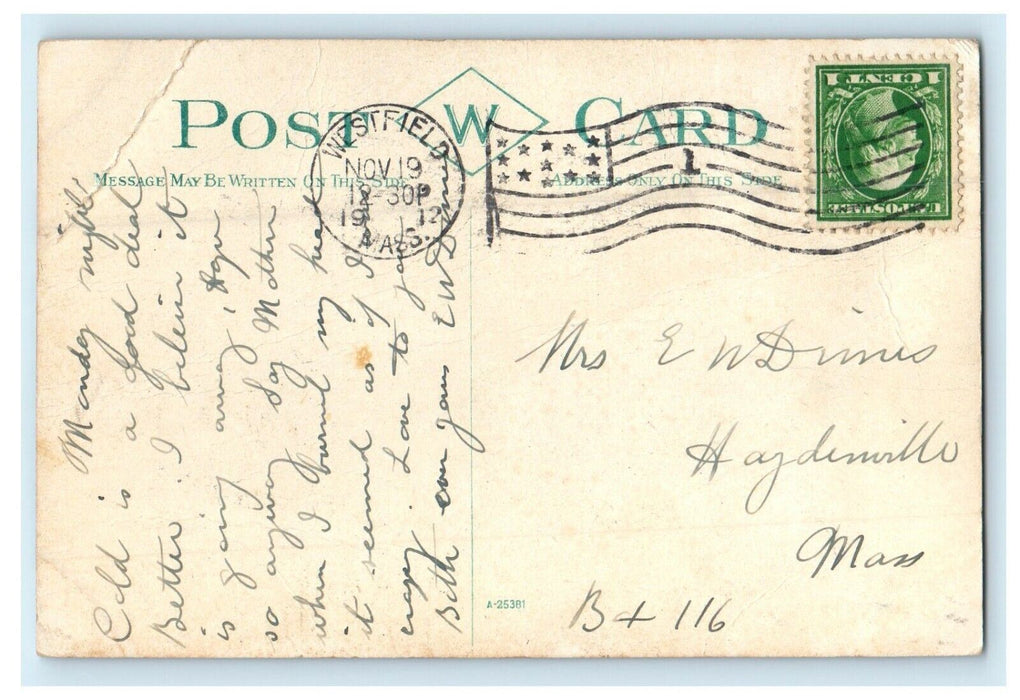 POST W CARD
MESSAGE MAY BE WRITTEN ON THIS SIDE
ADDRESS ONLY ON THIS SIDE
WESTFIELD
NOV 19
12-30P
19 12
MASS.
1
1 CENT 1
U.S. POSTAGE
Monday night
Cold is a good deal
Better. I believe it
is going away, Hope
so anyway Say Mother
when I burned my head
it seemed as if I
crazy. Love to you
Both
yours E W Dimis
Mrs E W Dimis
Haydenville
Mass
Bx 116
A-25381